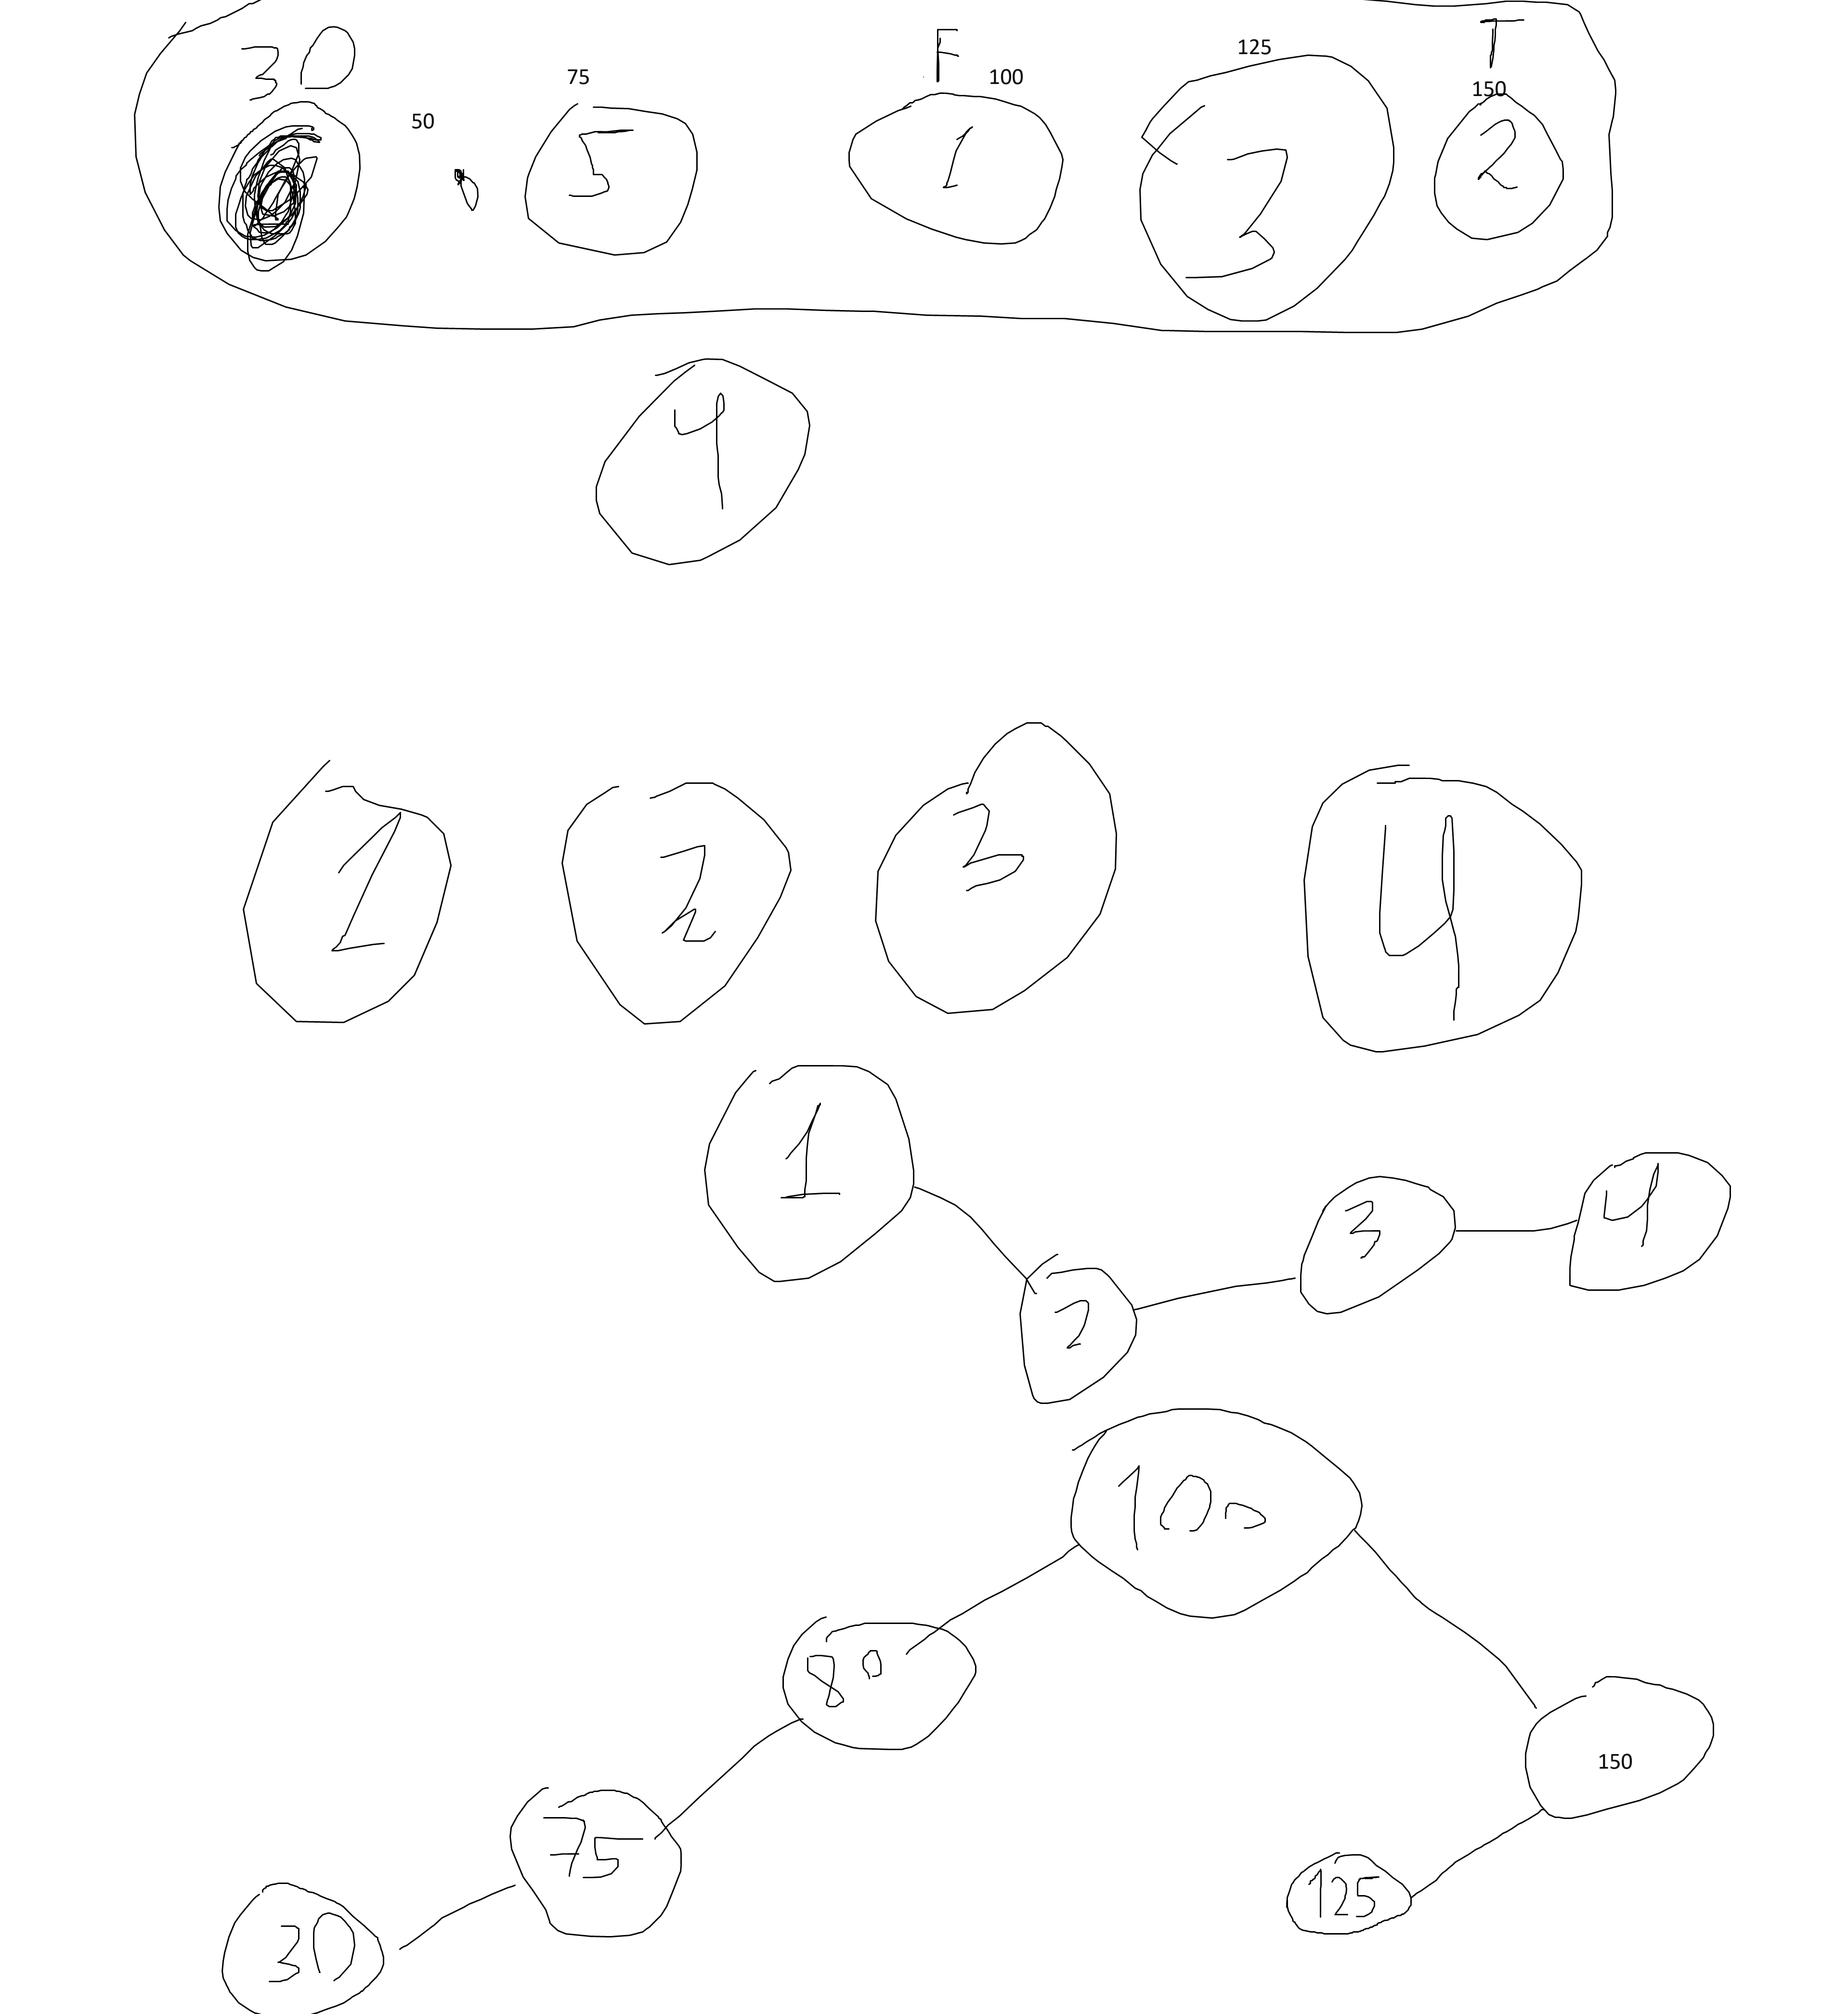 30 50 75 F 100 125 T 150
5 1 3 2
4
1 2 3 4
1 2 3 4
100
80 150
75 125
30